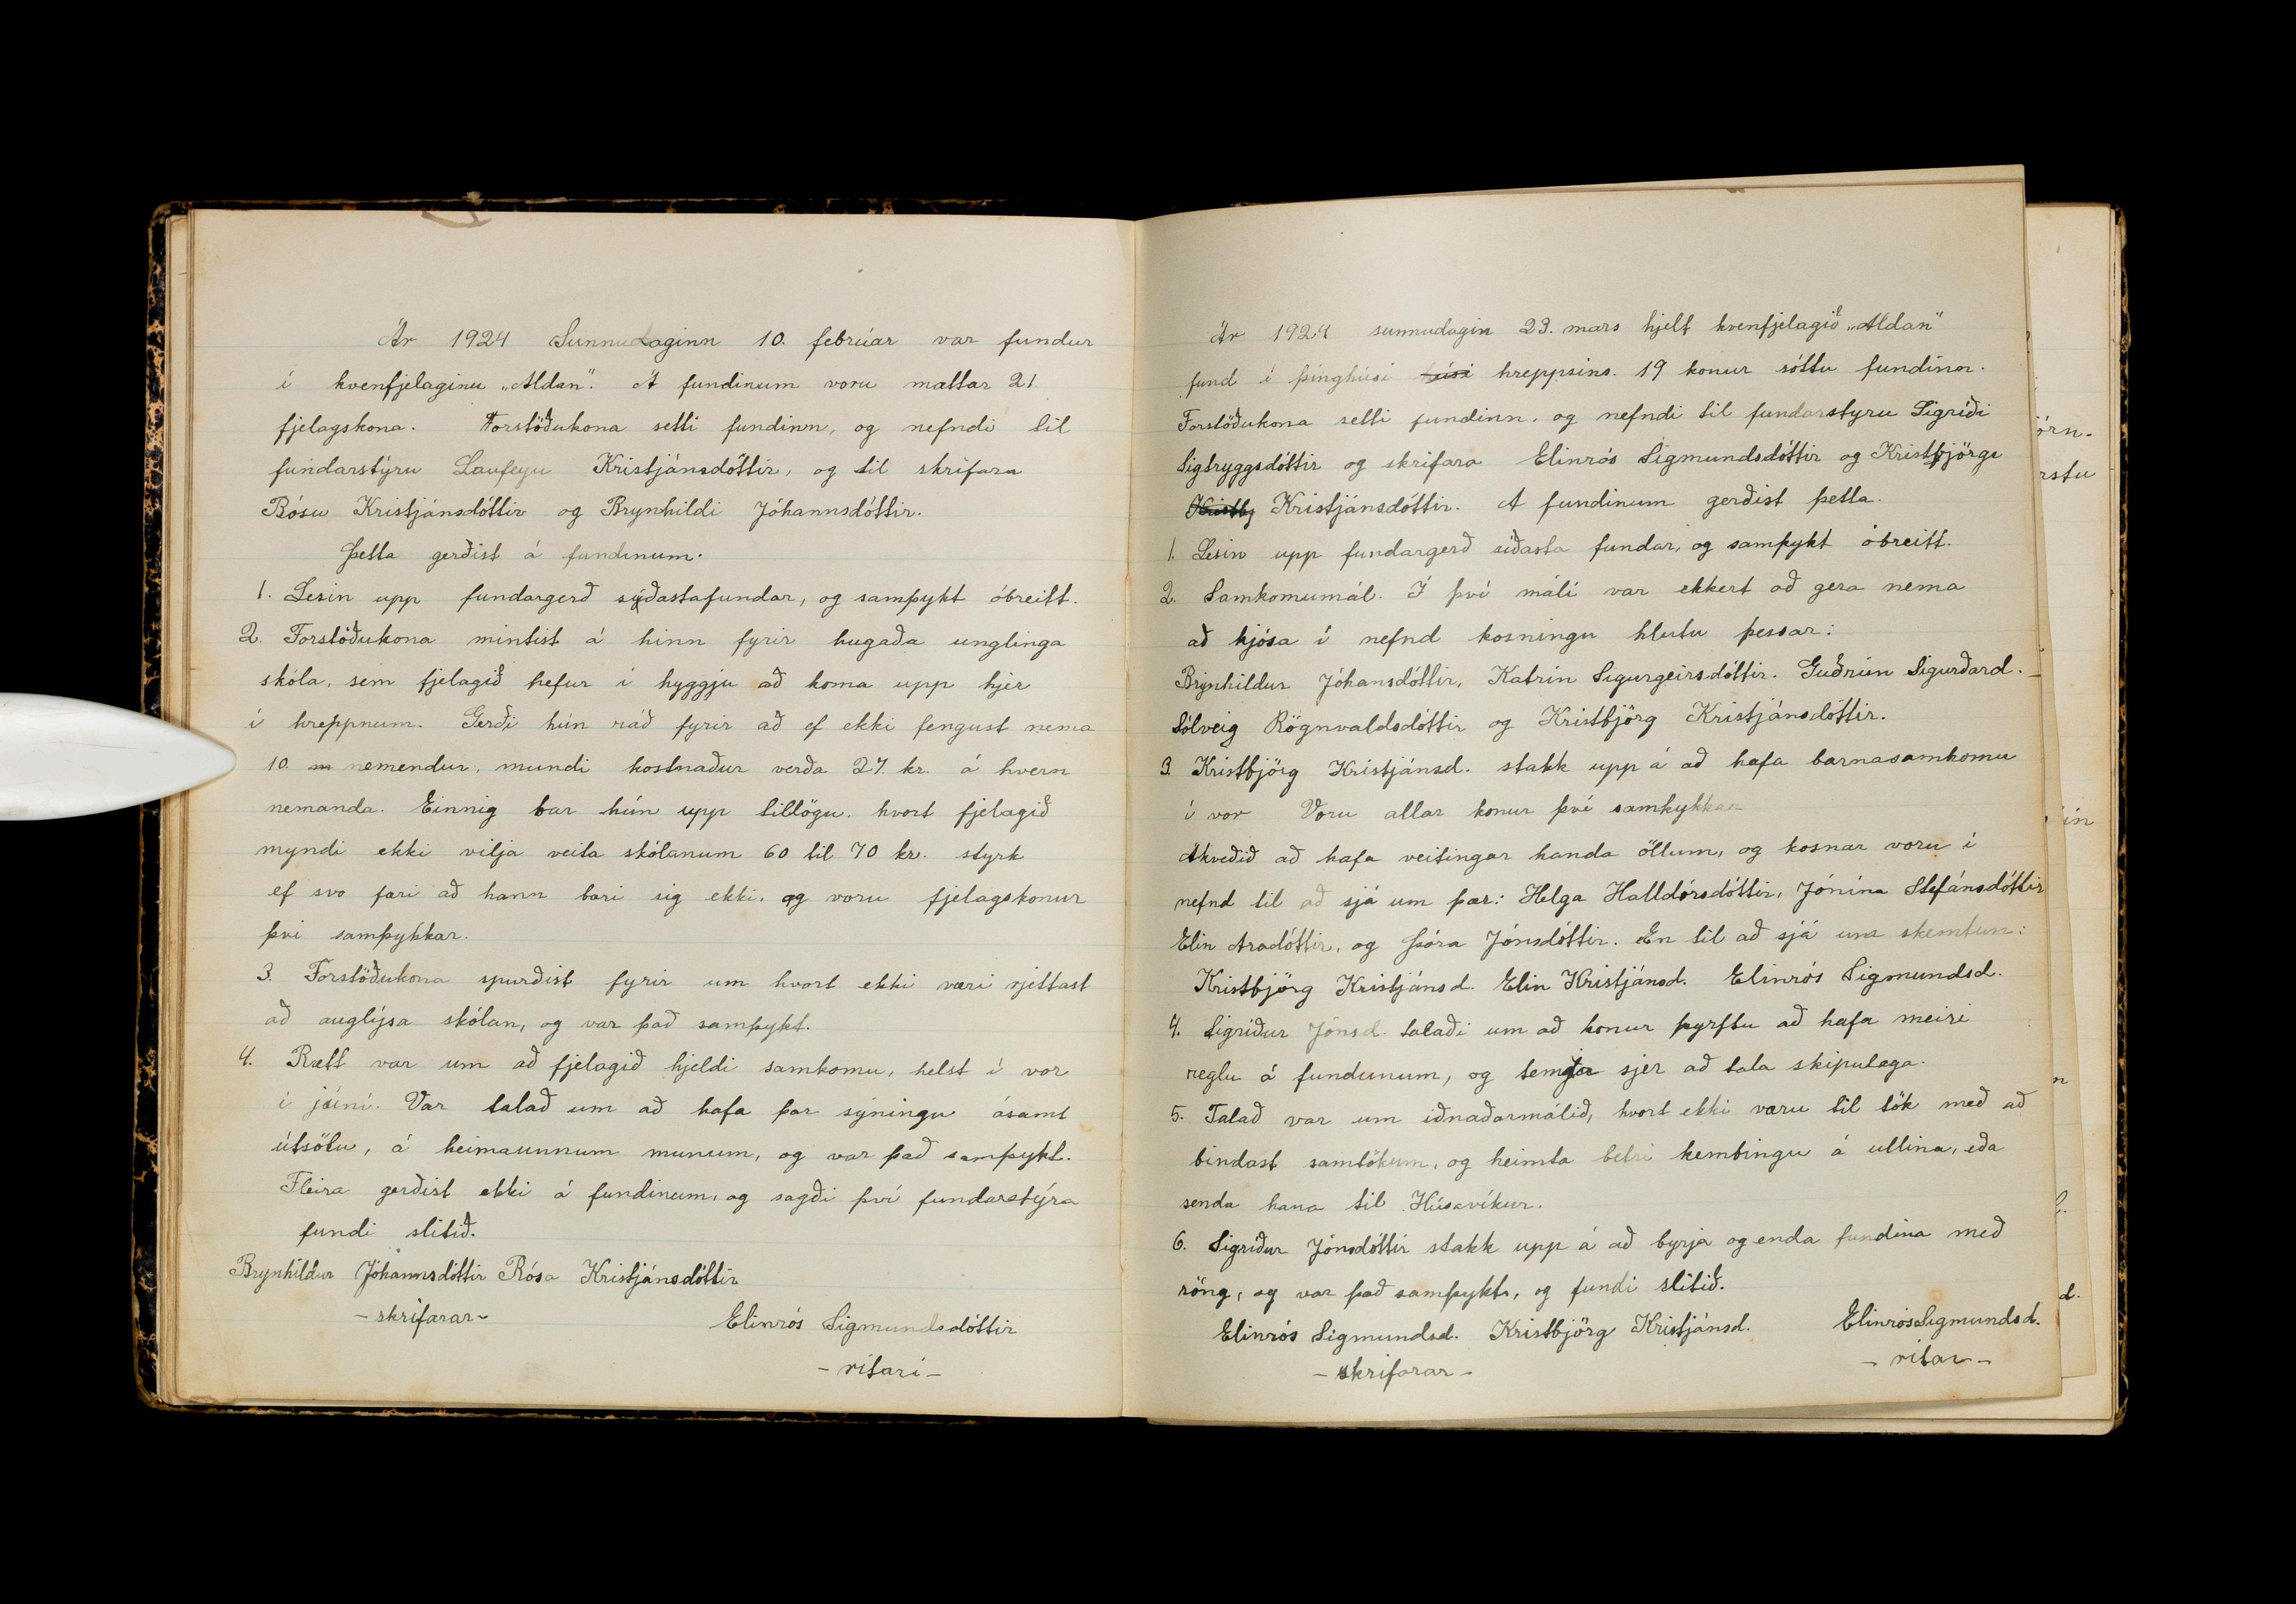 Ár 1924 Sunnudaginn 10. febrúar var fundur
í kvenfjelaginu „Aldan". Á fundinum voru mættar 21
fjelagskona. Forstöðukona setti fundinn, og nefndi til
fundarstýru Laufeyu Kristjánsdóttir, og til skrifara
Rósu Kristjánsdóttir og Brynhildi Jóhannsdóttir.
Þetta gerðist á fundinum.
1. Lesin upp fundargerð síðastafundar, og samþykt óbreitt.
2. Forstöðukona mintist á hinn fyrir hugaða unglinga
skóla, sem fjelagið hefur í hyggju að koma upp hjer
í hreppnum. Gerði hún ráð fyrir að ef ekki fengust nema
10. nemendur, mundi kostnaður verða 27. kr. á hvern
nemanda. Einnig bar hún upp tillögu. hvort fjelagið
myndi ekki vilja veita skólanum 60 til 70 kr. styrk
ef svo færi að hann bæri sig ekki, og voru fjelagskonur
því samþykkar.
3. Forstöðukona spurðist fyrir um hvort ekki væri rjettast
að auglýsa skólan, og var það samþykt.
4. Rætt var um að fjelagið hjeldi samkomu, helst í vor
í júní. Var talað um að hafa þar sýningu ásamt
útsölu, á heimaunnum munum, og var það samþykt.
Fleira gerðist ekki á fundinum, og sagði því fundarstýra
fundi slitið.
Brynhildur Jóhannsdóttir Rósa Kristjánsdóttir
- skrifarar -
Elinrós Sigmundsdóttir
- ritari -
Ár 1924 sunnudagin 23. mars hjelt kvenfjelagið „Aldan"
fund í þinghúsi húsi hreppsins. 19 konur sóttu fundinn.
Forstöðukona setti fundinn, og nefndi til fundarstyru Sigríði
Sigtryggsdóttir og skrifara Elinrós Sigmundsdóttir og Kristbjörgu
Kristbj Kristjánsdóttir. Á fundinum gerðist þetta.
1. Lesin upp fundargerð síðasta fundar, og samþykt óbreitt.
2. Samkomumál. Í því máli var ekkert að gera nema
að kjósa í nefnd kosningu hlutu þessar:
Brynhildur Jóhansdóttir, Katrín Sigurgeirsdóttir. Guðrún Sigurðard.
Sólveig Rögnvaldsdóttir og Kristbjörg Kristjánsdóttir.
3. Kristbjörg Kristjánsd. stakk upp á að hafa barnasamkomu
í vor Voru allar konur því samþykkar
Ákveðið að hafa veitingar handa öllum, og kosnar voru í
nefnd til að sjá um þær: Helga Halldórsdóttir, Jónína Stefánsdóttir
Elin Aradóttir, og Þóra Jónsdóttir. En til að sjá um skemtun:
Kristbjörg Kristjánsd. Elin Kristjánsd. Elinrós Sigmundsd.
4. Sigríður Jónsd. talaði um að konur þyrftu að hafa meiri
reglu á fundunum, og temja sjer að tala skipulega.
5. Talað var um iðnaðarmálið, hvort ekki væru til tök með að
bindast samtökum, og heimta betri kembingu á ullina, eða
senda hana til Húsavíkur.
6. Sigríður Jónsdóttir stakk upp á að byrja og enda fundina með
söng, og var það samþykt, og fundi slitið.
Elinrós Sigmundsd. Kristbjörg Kristjánsd.
- skrifarar -
Elinrós Sigmundsd.
- ritari -